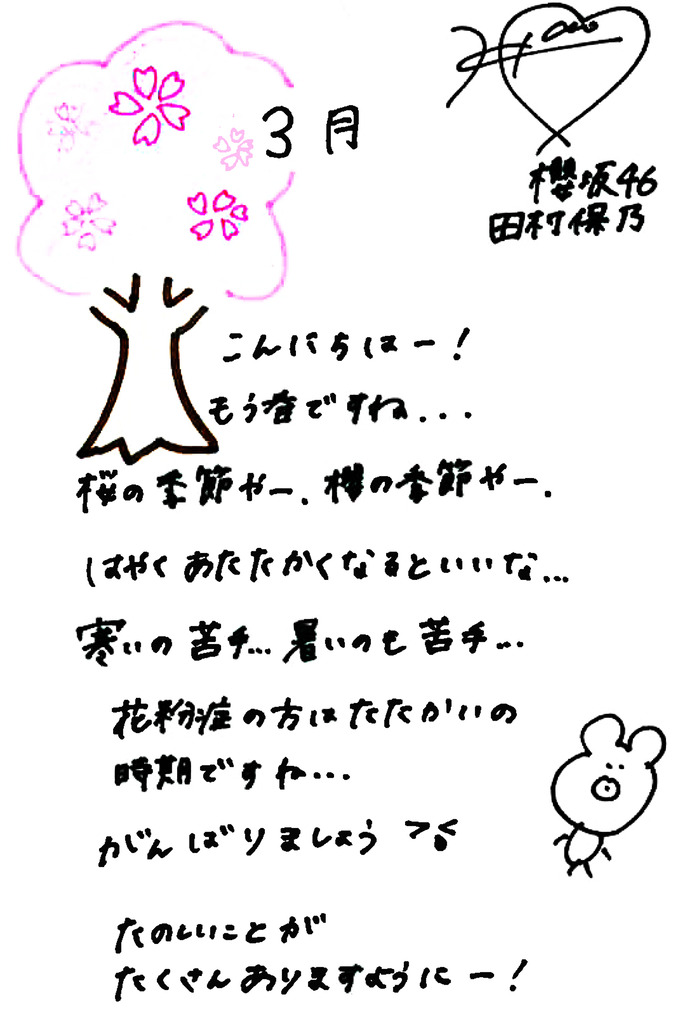 3月
櫻坂46
田村保乃
こんにちはー!
もう春ですね...
桜の季節やー、櫻の季節やー、
はやくあたたかくなるといいな...
寒いの苦手...暑いのも苦手...
花粉症の方はたたかいの
時期ですね...
がんばりましょう
たのしいことが
たくさんありますようにー!